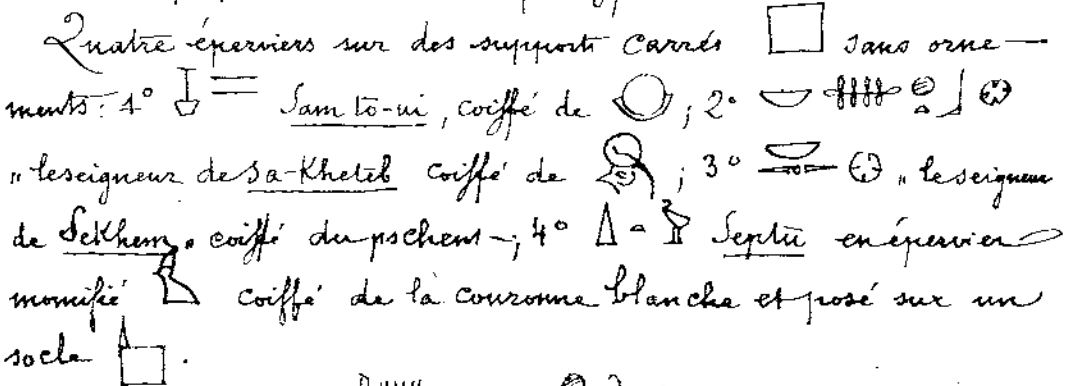 Quatre éperviers sur des supports carrés sans orne—
ments: 1° Sam to-ui, coiffé de ; 2°
"le seigneur de Sa-Kheteb coiffé de ; 3° "le seigneur
de Sekhem" coiffé du pschent—; 4° Septu en épervier
momifié coiffé de la couronne blanche et posé sur un
socle .